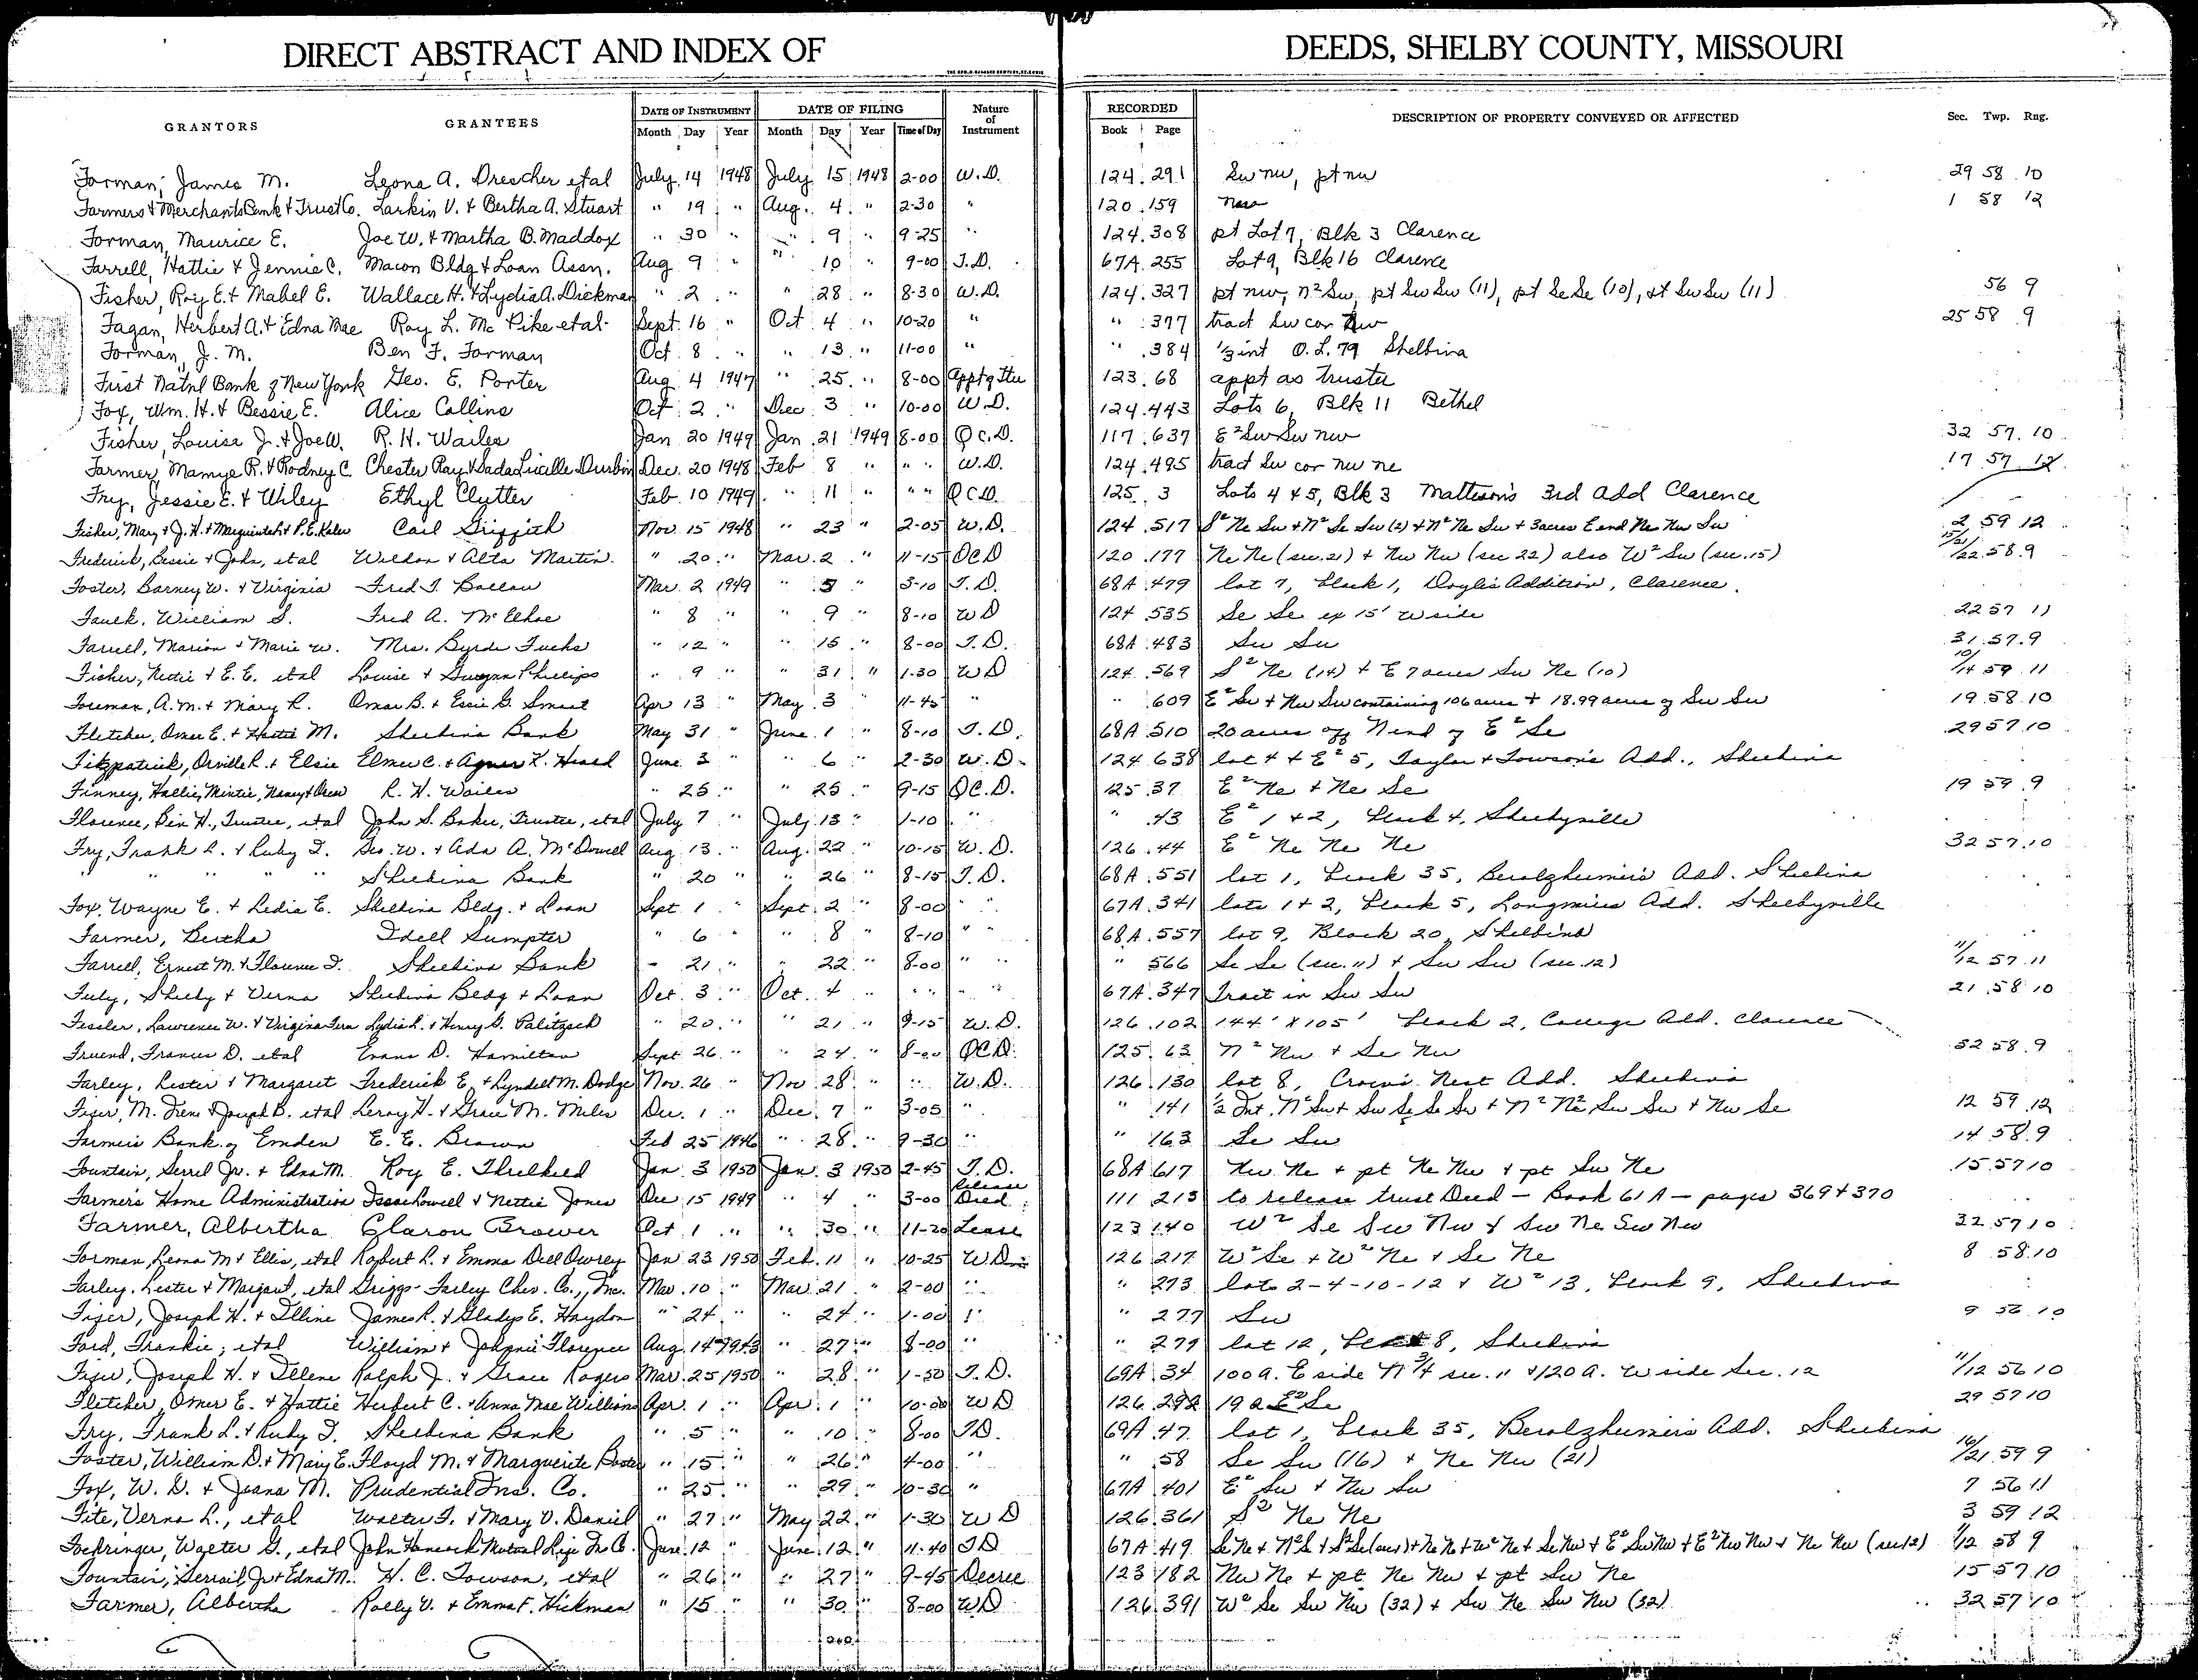 DIRECT ABSTRACT AND INDEX OF DEEDS, SHELBY COUNTY, MISSOURI
GRANTORS GRANTEES DATE OF INSTRUMENT DATE OF FILING Nature of Instrument RECORDED DESCRIPTION OF PROPERTY CONVEYED OR AFFECTED Sec. Twp. Rng.
Month Day Year Month Day Year Time of Day Book Page
Forman, James M. Leona A. Drescher etal July 14 1948 July 15 1948 2-00 W.D. 124 291 Sw nw, pt nw 29 58 10
Farmers & Merchants Bank & Trust Co. Larkin V. & Bertha A. Stuart " 19 " Aug. 4 " 2-30 " 120 159 1 58 12
Forman, Maurice E. Joe W. & Martha B. Maddox " 30 " " 9 " 9-25 " 124 308 pt Lot 7, Blk 3 Clarence
Farrell, Hattie & Jennie C. Macon Bldg & Loan Assn. Aug 9 " " 10 " 9-00 T.D. 67A 255 Lot 9, Blk 16 Clarence
Fisher, Roy E. & Mabel E. Wallace H. & Lydia A. Dickman " 2 " " 28 " 8-30 W.D. 124 327 pt nw, n² Sw, pt Sw Sw (11), pt Se Se (10), Sw Sw (11) 56 9
Fagan, Herbert A. & Edna Mae Roy L. McPike etal Sept. 16 " Oct 4 " 10-20 " " 377 tract Sw cor Nw 25 58 9
Forman, J. M. Ben F. Forman Oct 8 " " 13 " 11-00 " " 384 1/3 int O.L. 79 Shelbina
First Natnl Bank of New York Geo. E. Porter Aug 4 1947 " 25 " 8-00 Appt of Ttee 123 68 appt as trustee
Fox, Wm. H. & Bessie E. Alice Collins Oct 2 " Dec 3 " 10-00 W.D. 124 443 Lots 6, Blk 11 Bethel
Fisher, Louisa J. & Joe W. R. H. Wailes Jan 20 1949 Jan 21 1949 8-00 Q C.D. 117 637 E² Sw Sw nw 32 57 10
Farmer, Mamye R. & Rodney C. Chester Ray & Sada Lucille Durbin Dec. 20 1948 Feb 8 " " " W.D. 124 495 tract Sw cor nw ne 17 57 12
Fry, Jessie E. & Wiley Ethyl Clutter Feb 10 1949 " 11 " " " Q C D. 125 3 Lots 4 & 5, Blk 3 Mattison's 3rd Add Clarence
Fisher, Mary & J. H. & Marguirite & P. E. Kaler Carl Griffith Nov. 15 1948 " 23 " 2-05 W.D. 124 517 S² Ne Sw & N² Se Sw (2) & N² Ne Sw & 3 acres E end Ne Nw Sw 2 59 12
Frederick, Bessie & John, et al Weldon & Alta Martin " 20 " Mar. 2 " 11-15 QCD 120 177 Ne Ne (sec. 21) & Nw Nw (sec 22) also W² Sw (sec. 15) 15/21/22 58 9
Foster, Barney W. & Virginia Fred T. Ballow Mar. 2 1949 " 5 " 3-10 T.D. 68A 479 lot 7, block 1, Doyle's Addition, Clarence.
Faulk, William S. Fred A. McElhoe " 8 " " 9 " 8-10 W D 124 535 Se Se ex 15' W side 22 57 11
Farrell, Marion & Marie W. Mrs. Byrde Fuchs " 12 " " 15 " 8-00 T.D. 68A 483 Sw Sw 31 57 9
Fisher, Nettie & E. E. et al Louise & Gwynn Phillips " 9 " " 31 " 1-30 W D 124 569 S² Ne (14) & E 7 acres Sw Ne (10) 10/14 59 11
Foreman, A. M. & Mary R. Omar B. & Essie G. Smoot Apr 13 " May 3 11-45 " " 609 E² Sw & Nw Sw containing 106 acres & 18.99 acres of Sw Sw 19 58 10
Fletcher, Omer E. & Hattie M. Shelbina Bank May 31 " June 1 " 8-10 T.D. 68A 510 20 acres off N end of E² Se 29 57 10
Fitzpatrick, Orville R. & Elsie Elmer C. & Agnes K. Heard June 3 " " 6 " 2-30 W.D. 124 638 lot 4 & E² 5, Taylor & Towson's Add., Shelbina
Finney, Hallie, Mintie, Nancy & Drew R. H. Wailes " 25 " " 25 " 9-15 QC.D. 125 37 E² Ne & Ne Se 19 59 9
Florence, Ben H., Trustee, et al John S. Baker, Trustee, et al July 7 " July 13 " 1-10 " " 43 E² 1 & 2, block 4, Shelbyville
Fry, Frank L. & Ruby T. Geo. W. & Ada A. McDowell Aug 13 " Aug. 22 " 10-15 W.D. 126 44 E² Ne Ne Ne 32 57 10
" " " " Shelbina Bank " 20 " " 26 " 8-15 T.D. 68A 551 lot 1, block 35, Berolzheimer's Add. Shelbina
Fox, Wayne E. & Ledia E. Shelbina Bldg. & Loan Sept 1 " Sept. 2 " 8-00 " " 67A 341 lots 1 & 2, block 5, Longmire's Add. Shelbyville
Farmer, Bertha Idell Sumpter " 6 " " 8 " 8-10 " " 68A 557 lot 9, Block 20, Shelbina
Farrell, Ernest M. & Florence T. Shelbina Bank " 21 " " 22 " 8-00 " " " 566 Se Se (sec. 11) & Sw Sw (sec. 12) 11/12 57 11
Fuly, Shelby & Verna Shelbina Bldg & Loan Oct. 3 " Oct. 4 " " " " " 67A 347 Tract in Sw Sw 21 58 10
Fessler, Lawrence W. & Virginia Fern Lydia L. & Henry G. Palitzsch " 20 " " 21 " 9-15 W.D. 126 102 144' X 105' block 2, College Add. Clarence
Friend, Frances D. et al Evans D. Hamilton Sept 26 " " 24 " 8-00 QC.D. 125 63 N² Nw & Se Nw 32 58 9
Farley, Lester & Margaret Frederick E. & Lyndell M. Dodge Nov. 26 " Nov 28 " " W.D. 126 130 lot 8, Crow's Nest Add. Shelbina
Fiser, M. Irene & Joseph B. et al Leroy H. & Grace M. Miles Dec. 1 " Dec. 7 " 3-05 " " 141 1/2 Int. N² Sw & Sw Se Se Sw & N² N² Sw Sw & Nw Se 12 59 12
Farmers Bank of Emden E. E. Brown Feb 25 1946 " 28 " 9-30 " " 163 Se Sw 14 58 9
Fountain, Serrel Jr. & Edna M. Roy E. Threlkeld Jan 3 1950 Jan. 3 1950 2-45 T.D. 68A 617 Nw Ne & pt Ne Nw & pt Sw Ne 15 57 10
Farmer's Home Administration Isaac Lowell & Nettie Jones Dec 15 1949 " 4 " 3-00 Release Deed 111 213 to release trust Deed — Book 61 A — pages 369 & 370
Farmer, Albertha Claron Brower Oct 1 " " 30 " 11-20 Lease 123 140 W² Se Sw Nw & Sw Ne Sw Nw 32 57 10
Forman, Leona M & Ellis, et al Robert L. & Emma Dell Owrey Jan 23 1950 Feb. 11 " 10-25 W D 126 217 W² Se & W² Ne & Se Ne 8 58 10
Farley, Lester & Margaret, et al Griggs-Farley Chev. Co., Inc. Mar. 10 " Mar. 21 " 2-00 " " 273 lots 2-4-10-12 & W² 13, block 9, Shelbina
Fiser, Joseph H. & Illine James R. & Gladys E. Haydon " 24 " " 24 " 1-00 " " 277 Sw 9 56 10
Ford, Frankie, et al William & Johnnie Florence Aug. 14 1943 " 27 " 8-00 " " 279 lot 12, block 8, Shelbina
Fiser, Joseph H. & Illene Ralph J. & Grace Rogers Mar. 25 1950 " 28 " 1-50 T.D. 69A 34 100 a. E side N 3/4 sec. 11 & 120 A. W side Sec. 12 11/12 56 10
Fletcher, Omer E. & Hattie Herbert C. & Anna Mae Williams Apr. 1 " Apr. 1 " 10-00 W D 126 292 19 a E² Se 29 57 10
Fry, Frank L. & Ruby T. Shelbina Bank " 5 " " 10 " 8-00 T.D. 69A 47 lot 1, block 35, Berolzheimer's Add. Shelbina
Foster, William D. & Mary E. Floyd M. & Marguerite " 15 " " 26 " 4-00 " " 58 Se Sw (16) & Ne Nw (21) 16/21 59 9
Fox, W. D. & Juana M. Prudential Ins. Co. " 25 " " 29 " 10-30 " 67A 401 E² Sw & Nw Sw 7 56 11
Fite, Verna L., et al Walter F. & Mary V. Daniel " 27 " May 22 " 1-30 W D 126 361 S² Ne Ne 3 59 12
Foehringer, Walter G., et al John Hancock Mutual Life In Co. June 12 " June 12 " 11-40 T D 67A 419 Se Ne & N² Se & S² Se (sec 1) & Ne Ne & W² Ne & Se Nw & E² Sw Nw & E² Nw Nw & Ne Nw (sec 12) 1/12 58 9
Fountain, Serrail Jr & Edna M. H. C. Towson, et al " 26 " " 27 " 9-45 Decree 123 182 Nw Ne & pt Ne Nw & pt Sw Ne 15 57 10
Farmer, Albertha Rolly V. & Emma F. Hickman " 15 " " 30 " 8-00 W D 126 391 W² Se Sw Nw (32) & Sw Ne Sw Nw (32) 32 57 10